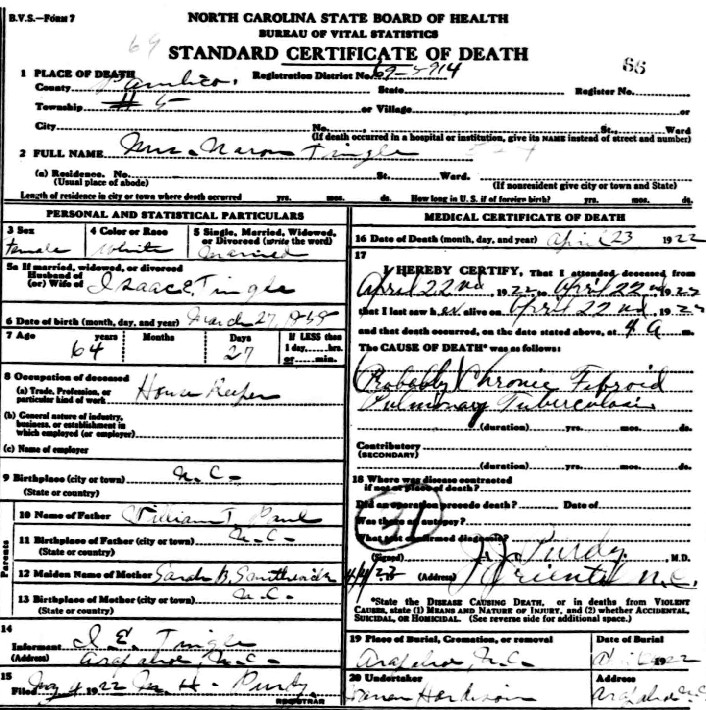 B.V.S.—Form 7
NORTH CAROLINA STATE BOARD OF HEALTH
BUREAU OF VITAL STATISTICS
69
STANDARD CERTIFICATE OF DEATH
66
1 PLACE OF DEATH
County Pamlico. Registration District No. 69-5914 State Register No.
Township # 5 or Village or
City No. St., Ward
(If death occurred in a hospital or institution, give its NAME instead of street and number)
2 FULL NAME Mrs. Tingle
(a) Residence. No. St. Ward.
(Usual place of abode) (If nonresident give city or town and State)
Length of residence in city or town where death occurred yrs. mos. ds. How long in U. S. if of foreign birth? yrs. mos. ds.
PERSONAL AND STATISTICAL PARTICULARS
3 Sex
female
4 Color or Race
White
5 Single, Married, Widowed, or Divorced (write the word)
Married
5a If married, widowed, or divorced
Husband of
(or) Wife of Isaac E. Tingle
6 Date of birth (month, day, and year) March 27, 
7 Age years Months Days If LESS than
64 27 1 day, hrs.
or min.
8 Occupation of deceased
(a) Trade, Profession, or
particular kind of work House Keeper
(b) General nature of industry,
business, or establishment in
which employed (or employer)
(c) Name of employer
9 Birthplace (city or town) N.C.
(State or country)
Parents
10 Name of Father William T. Paul
11 Birthplace of Father (city or town) N.C.
(State or country)
12 Maiden Name of Mother Sarah B.
13 Birthplace of Mother (city or town) N.C.
(State or country)
14
Informant I. E. Tingle
(Address) Arapahoe, N.C.
15
Filed 1922 H. Purdy
REGISTRAR
MEDICAL CERTIFICATE OF DEATH
16 Date of Death (month, day, and year) April 23 1922
17
I HEREBY CERTIFY, That I attended deceased from
April 22nd, 1922 to April 22nd, 1922
that I last saw her alive on April 22nd, 1922
and that death occurred, on the date stated above, at 4 A m.
The CAUSE OF DEATH* was as follows:
(Probably) Chronic Fibroid
Pulmonary Tuberculosis
(duration) yrs. mos. ds.
Contributory
(SECONDARY)
(duration) yrs. mos. ds.
18 Where was disease contracted
if not at place of death?
Did an operation precede death? Date of
Was there an autopsy?
What test confirmed diagnosis?
31
(Signed) Purdy, M.D.
(Address) Oriental N.C.
*State the DISEASE CAUSING DEATH, or in deaths from VIOLENT
CAUSES, state (1) MEANS AND NATURE OF INJURY, and (2) whether ACCIDENTAL,
SUICIDAL, or HOMICIDAL. (See reverse side for additional space.)
19 Place of Burial, Cremation, or removal Date of Burial
Arapahoe, N.C.
20 Undertaker Address
Hardison Arapahoe N.C.